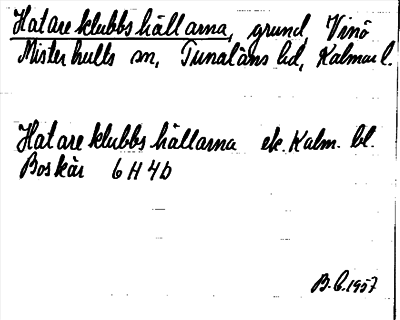 Hatareklubbshällarna, grund, Vinö
Misterhults sn, Tunaläns hd, Kalmar l.
Hatareklubbshällarna ek. Kalm. bl.
Boskär 6H4b
B.C. 1957